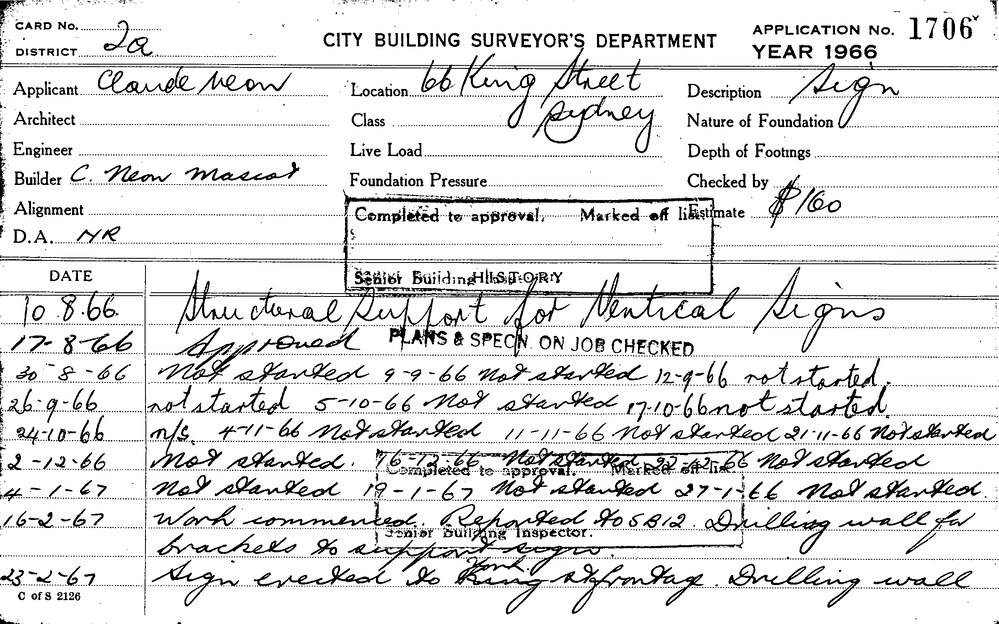 CARD No.
DISTRICT 2a
CITY BUILDING SURVEYOR'S DEPARTMENT
APPLICATION No. 1706
YEAR 1966
Applicant Claude Neon Location 66 King Street Description Sign
Architect Class Sydney Nature of Foundation
Engineer Live Load Depth of Footings
Builder C. Neon Mascot Foundation Pressure Checked by
Alignment Completed to approval. Marked off list Estimate $160
D.A. NR
Senior Building HISTORY
DATE
10.8.66. Structural Support for Vertical Signs
17-8-66 Approved PLANS & SPECN. ON JOB CHECKED
30-8-66 Not started 9-9-66 Not started 12-9-66 not started.
26-9-66 not started 5-10-66 Not started 17-10-66 not started.
24-10-66 n/s. 4-11-66 Not started 11-11-66 Not started 21-11-66 Not started
2-12-66 Not started. 16-12-66 Not started 22-12-66 Not started
Completed to approval. Marked off list
4-1-67 Not started 19-1-67 Not started 27-1-66 Not started.
16-2-67 Work commenced. Reported to SB12. Drilling wall for
Senior Building Inspector.
brackets to support sign.
York
23-2-67 Sign erected to King St frontage. Drilling wall
C of S 2126